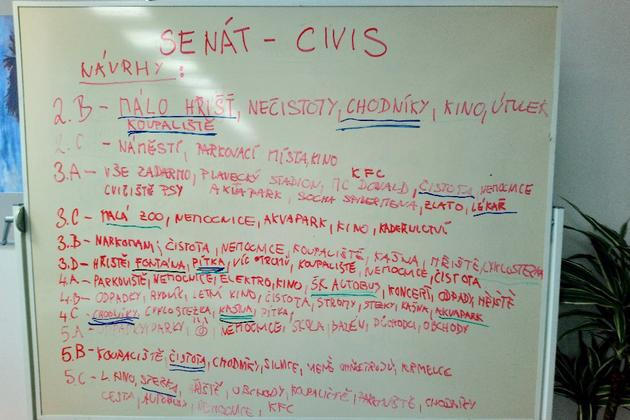 SENÁT - CIVIS
NÁVRHY:
2.B - MÁLO HŘIŠŤ, NEČISTOTY, CHODNÍKY, KINO, ÚTULEK
KOUPALIŠTĚ
2.C - NÁMĚSTÍ, PARKOVACÍ MÍSTA, KINO
KFC
3.A - VŠE ZADARMO, PLAVECKÝ STADION, MC DONALD, ČISTOTA, NEMOCNICE
CVIČIŠTĚ PSY AKVAPARK, SOCHA SPIDERMENA, ZLATO, LÉKAŘ
3.C - MALÁ ZOO, NEMOCNICE, AKVAPARK, KINO, KADEŘNICTVÍ
3.B - NARKOMANI, ČISTOTA, NEMOCNICE, KOUPALIŠTĚ, KAŠNA, HŘIŠTĚ, CYKLOSTEZKA
3.D - HŘIŠTĚ, FONTÁNA, PÍTKA, VÍC STROMŮ, KOUPALIŠTĚ, NEMOCNICE, ČISTOTA
4.A - PARKOVIŠTĚ, NEMOCNICE, ELEKTRO, KINO, ŠK. AUTOBUS, KONCERTY, ODPADY, HŘIŠTĚ
4.B - ODPADKY, RYBNÍK, LETNÍ KINO, ČISTOTA, STROMY, STEZKY, KAŠNA, AKVAPARK
4C - CHODNÍKY, CYKLOSTEZKA, KAŠNA, PÍTKA
5.A - PARKY, NEMOCNICE, ŠKOLA, BAZÉN, OBCHODY
5.B - KOUPALIŠTĚ, ČISTOTA, CHODNÍKY, SILNICE, MÉNĚ
5.C - L. KINO, HŘIŠTĚ, OBCHODY, KOUPALIŠTĚ, PARKOVIŠTĚ, CHODNÍKY
CESTA, AUTOBUSY, NEMOCNICE, KFC